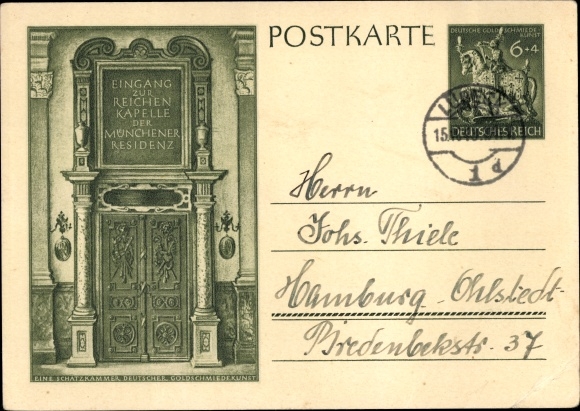 POSTKARTE
DEUTSCHE GOLDSCHMIEDE-
KUNST
6+4
DEUTSCHES REICH
EINGANG
ZUR
REICHEN
KAPELLE
DER
MÜNCHENER
RESIDENZ
EINE SCHATZKAMMER DEUTSCHER GOLDSCHMIEDEKUNST
Herrn
Johs. Thiele
Hamburg-Ohlstedt-
Bredenbekstr. 37